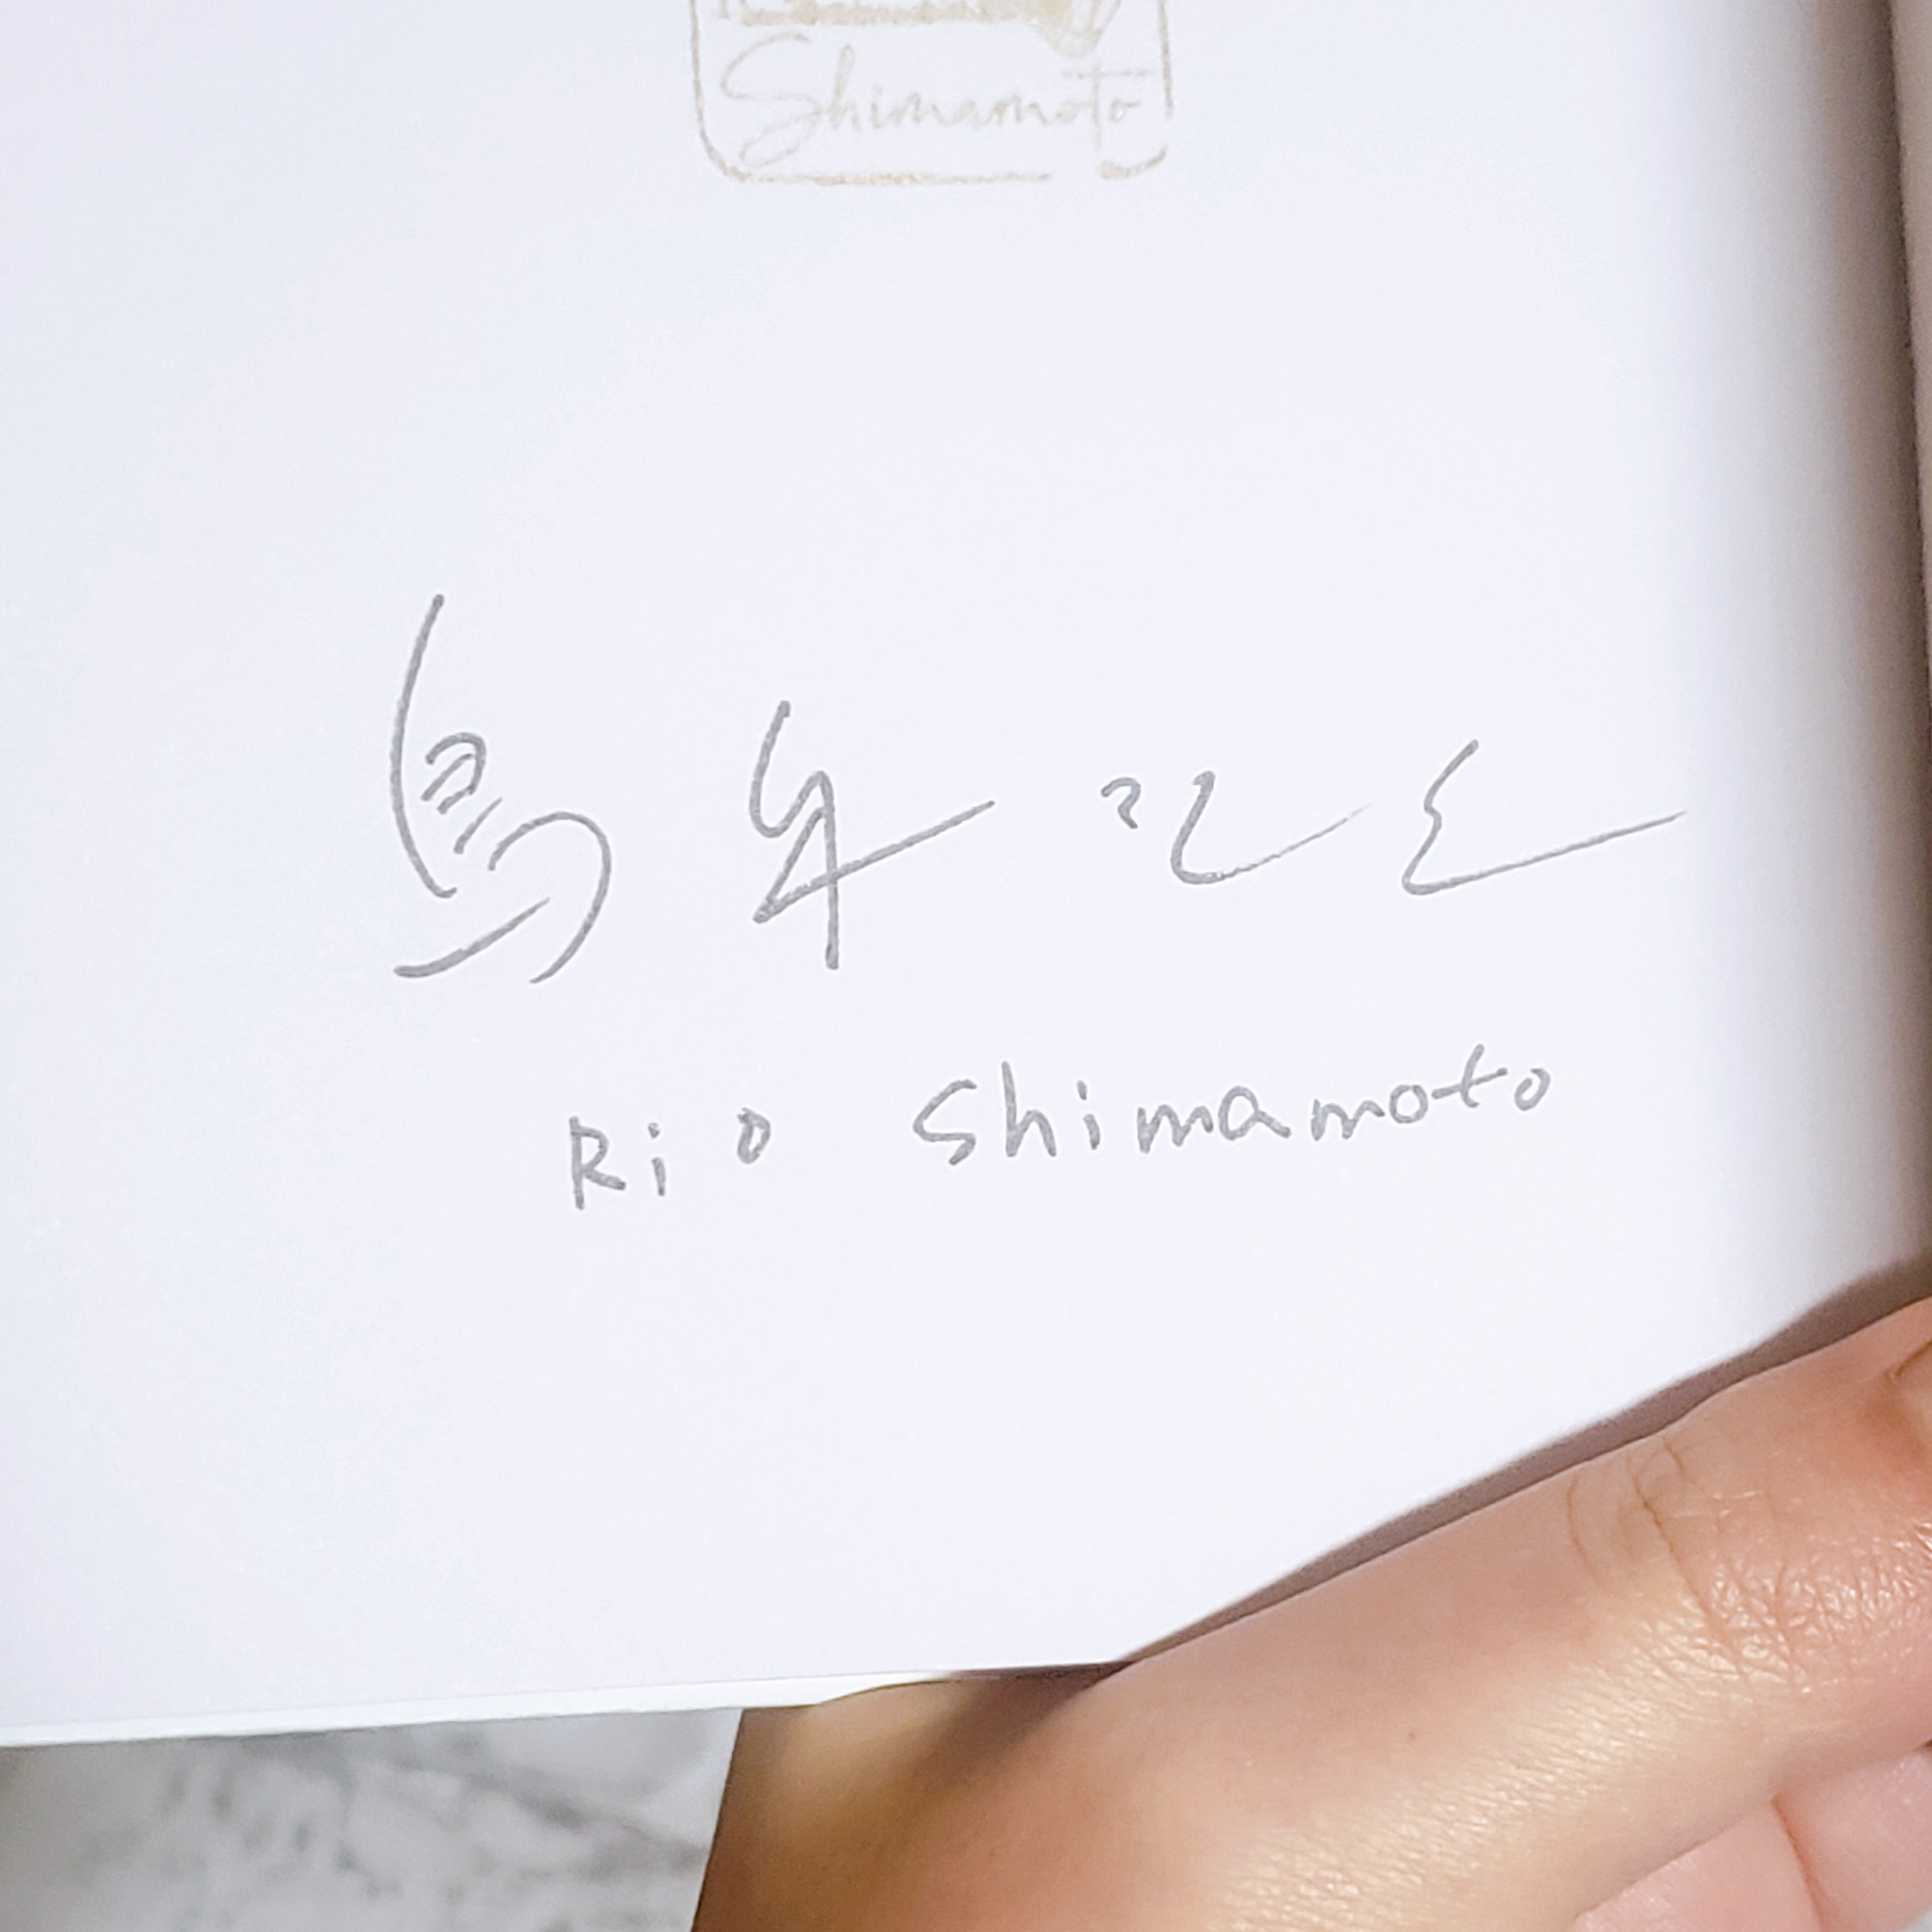 Shimamoto
島本理生
Rio Shimamoto